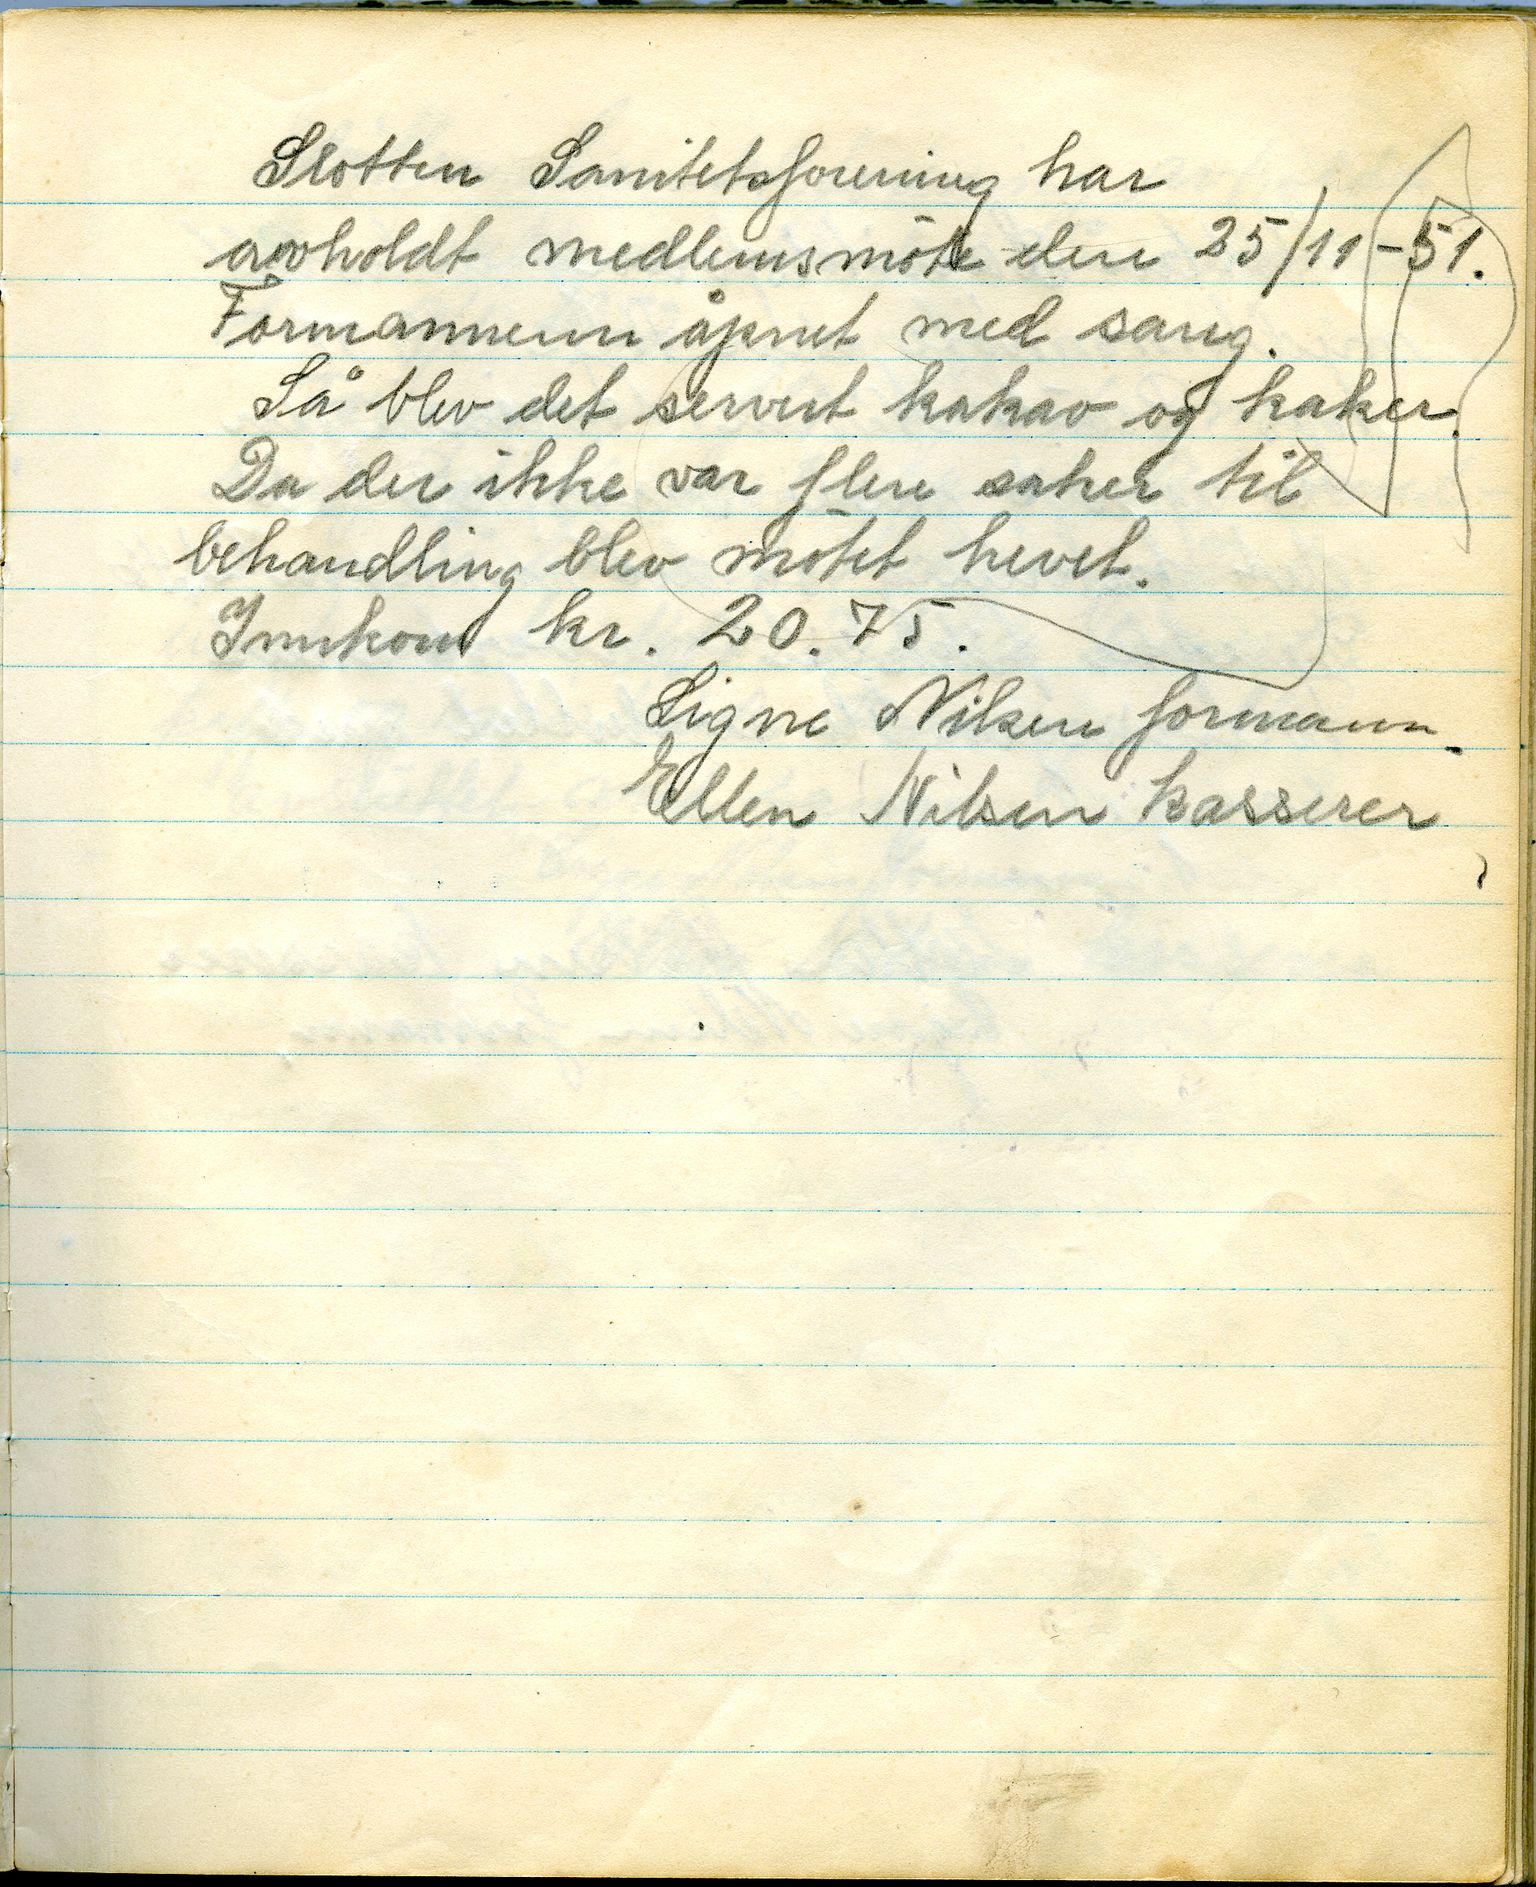 Slotten Sanitetsforening har
avholdt medlemsmöte den 25/11-51.
Formannenn åpnet med sang.
Så blev det servert kakao og kaker.
Da der ikke var flere saker til
behandling blev mötet hevet.
Innkom kr. 20.75.
Signe Nilsen formann.
Ellen Nilsen kasserer